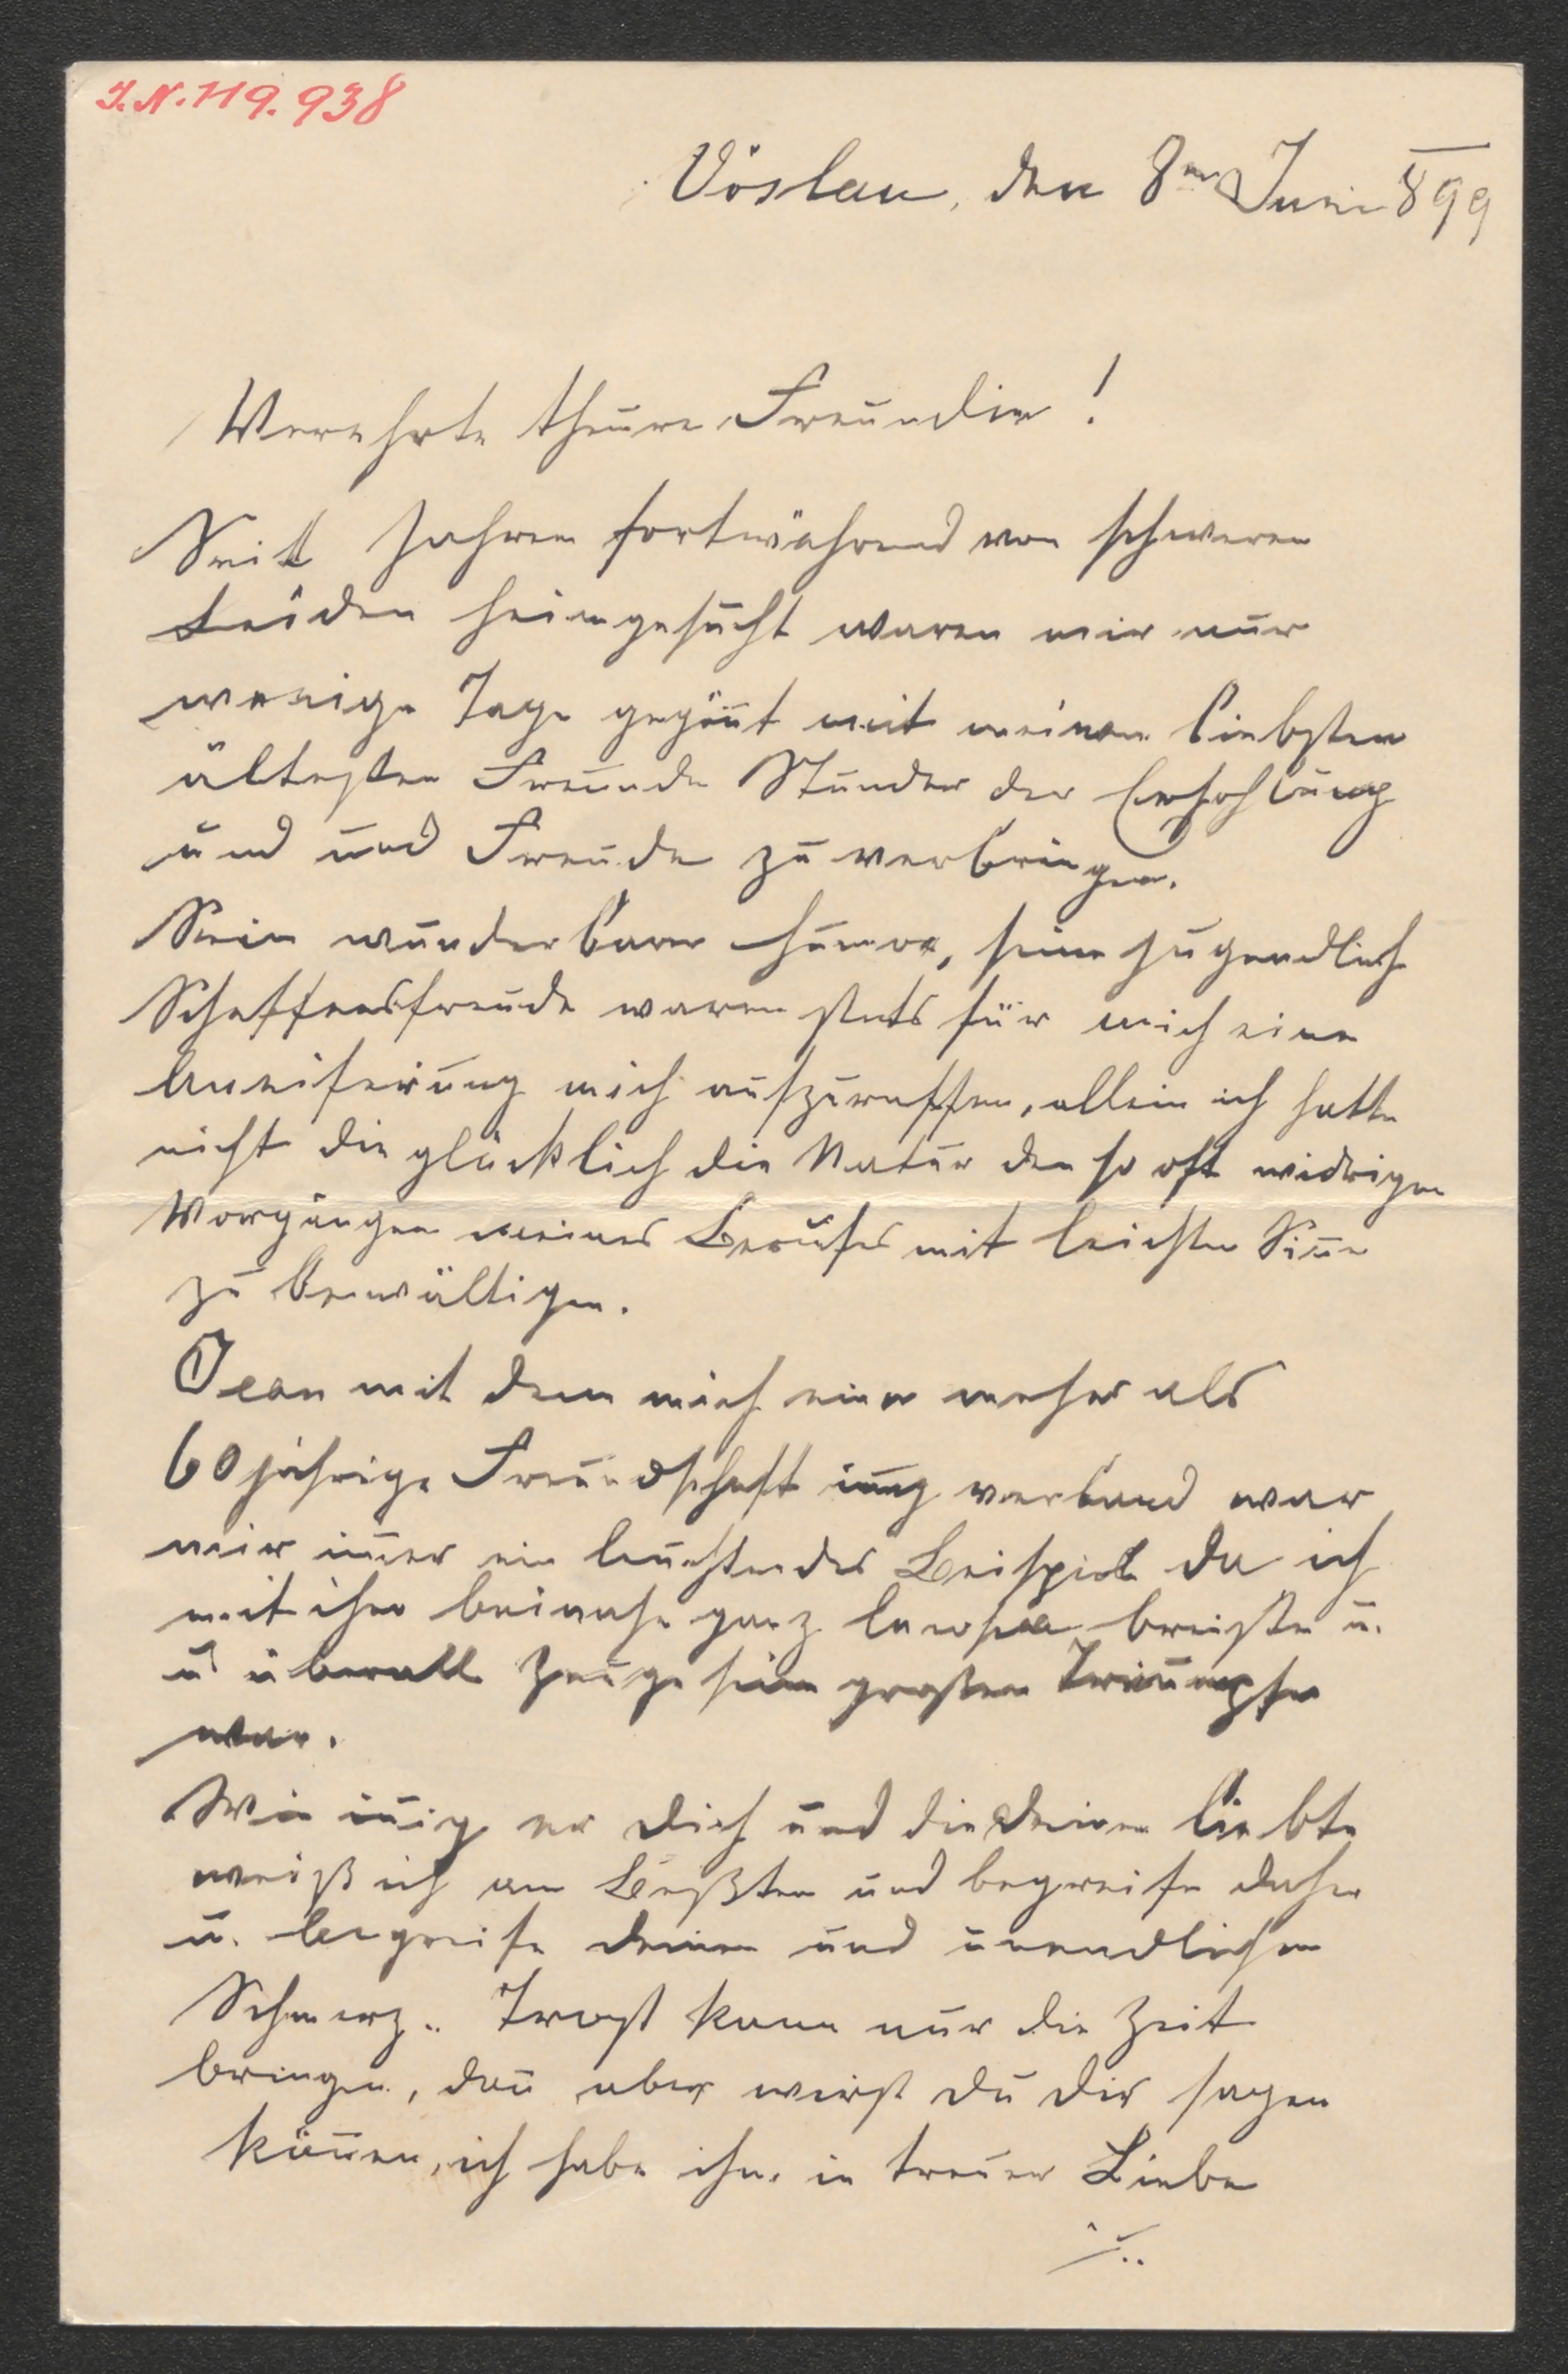 I.N. 119.938
Vöslau, den 8ten Juni 899
Verehrte theure Freundin!
Seit Jahren fortwährend von schweren
Leiden heimgesucht waren mir nur
wenige Tage gegönt mit meinem liebsten
ältesten Freunde Stunden der Erhohlung
und und Freude zu verbringen.
Sein wunderbarer Humor, seine jugendlich
Schaffensfreude waren stets für mich eine
Aneiferung mich aufzuraffen, allein ich hatte
nicht die glücklich die Natur den so oft widrigen
Vorgängen meines Berufes mit leichten Siñe
zu bewältigen.
Jean mit dem mich eine mehr als
60jährige Freundschaft iñig verband war
mir im̄er ein leuchtendes Beispiel da ich
mit ihm beinahe ganz Europa bereiste u.
u überall Zeuge seiner großen Triumphe
war.
Wie iñig er Dich und die Deinen liebte
weiß ich am Beßten und begreife daher
u. begreife Deinen und unendlichen
Schmerz. Trost kann nur die Zeit
bringen, dañ aber wirst Du Dir sagen
köñen, ich habe ihn in treuer Liebe
./..